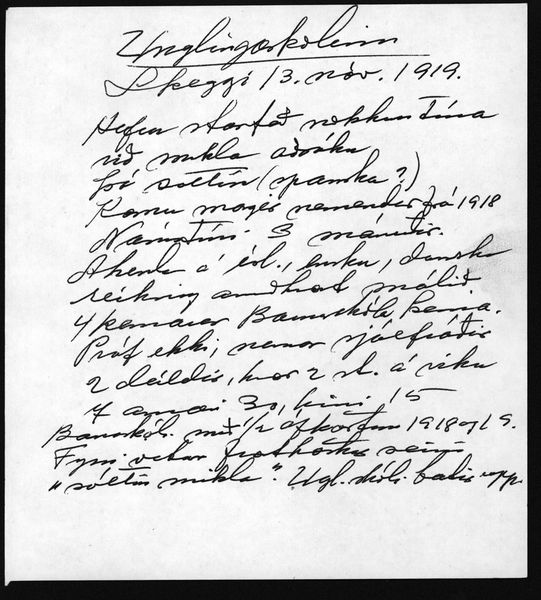 Unglingaskólinn
Skeggi 13. nóv. 1919.
Hefur starfað nokkurn tíma
við mikla aðsókn
þó sóttin (spanska?)
Komu margir nemendur frá 1918
Námstími 3 mánuðir.
Áhersla á ísl., ensku, dönsku
reikning andhaf málið.
4 kennarar Barnaskóla kenna.
Próf ekki, nema sjálfráðir
2 deildir, hvor 2 st. á viku
7 annari 30, hinni 15
Barnaskóli með 1/2 afköstum 1918 og 19.
Fyrri vetur frosthörkur seinni
"sóttin mikla". Ugl. skóli